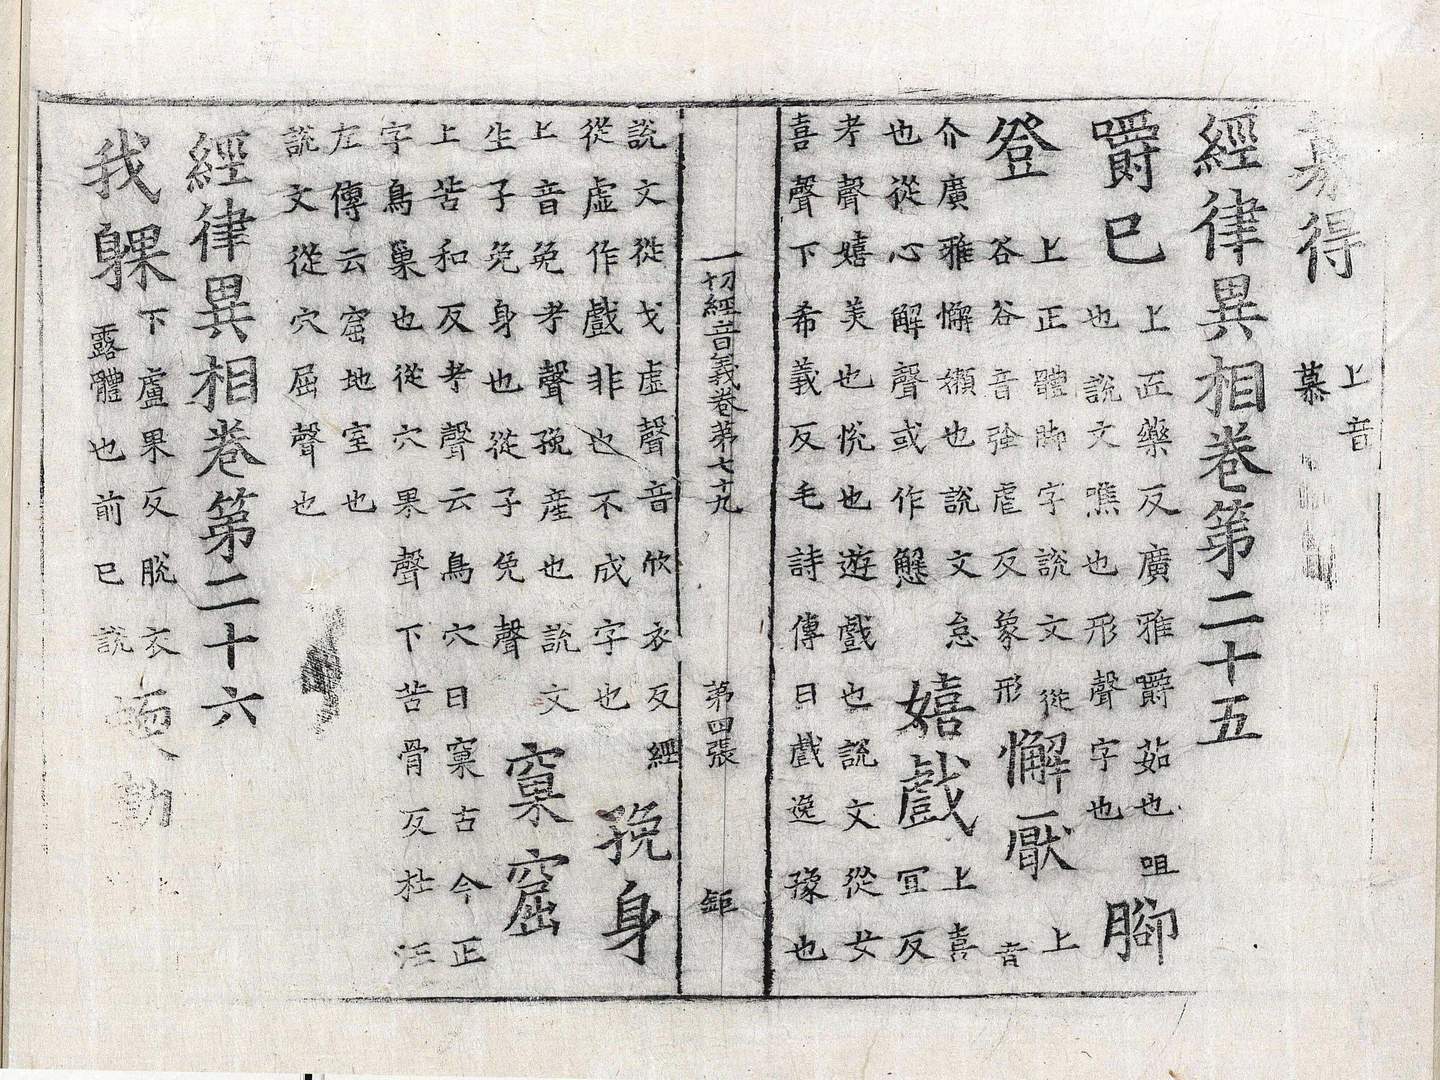 募得
上音
慕
經律異相卷第二十五
嚼已
上匠藥反廣雅嚼茹也咀
也說文噍也形聲字也
腳
登
上正體脚字說文從
谷谷音強虐反象形
懈厭
上
音
介廣雅懈嬾也說文怠
也從心解聲或作懈
嬉戲
上喜
冝反
考聲嬉美也悅也遊戲也說文從女
喜聲下希義反毛詩傳曰戲逸豫也
一切經音義卷第七十九 第四張 鉅
說文從戈䖒聲音欣衣反經
從虛作戲非也不成字也
㝃身
上音免考聲㝃産也說文
生子免身也從子免聲
窠窟
上苦和反考聲云鳥穴曰窠古今正
字鳥巢也從穴果聲下苦骨反杜注
左傳云窟地室也
說文從穴屈聲也
經律異相卷第二十六
我躶
下盧果反脫衣
露體也前已說